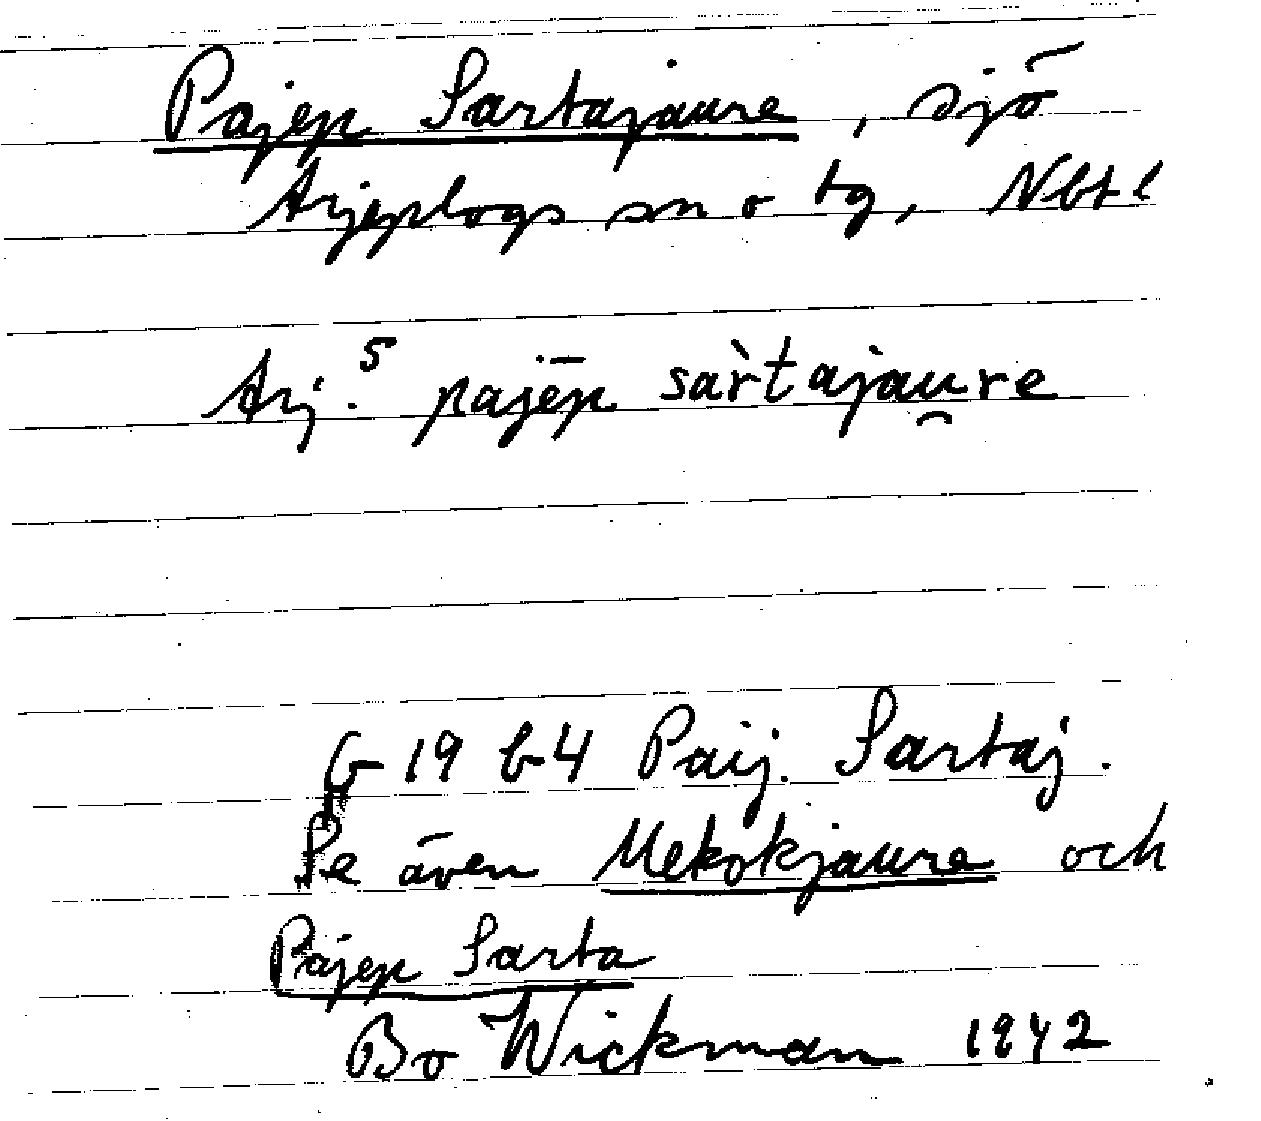 Pajep Sartajaure, sjö
Arjeplogs sn o tg, Nbtl
Arj.⁵ pajēp sàr̀tajau̯re
G 19 b-4 Paij. Sartaj.
Se även Mekokjaure och
Pajep Sarta
Bo Wickman 1942